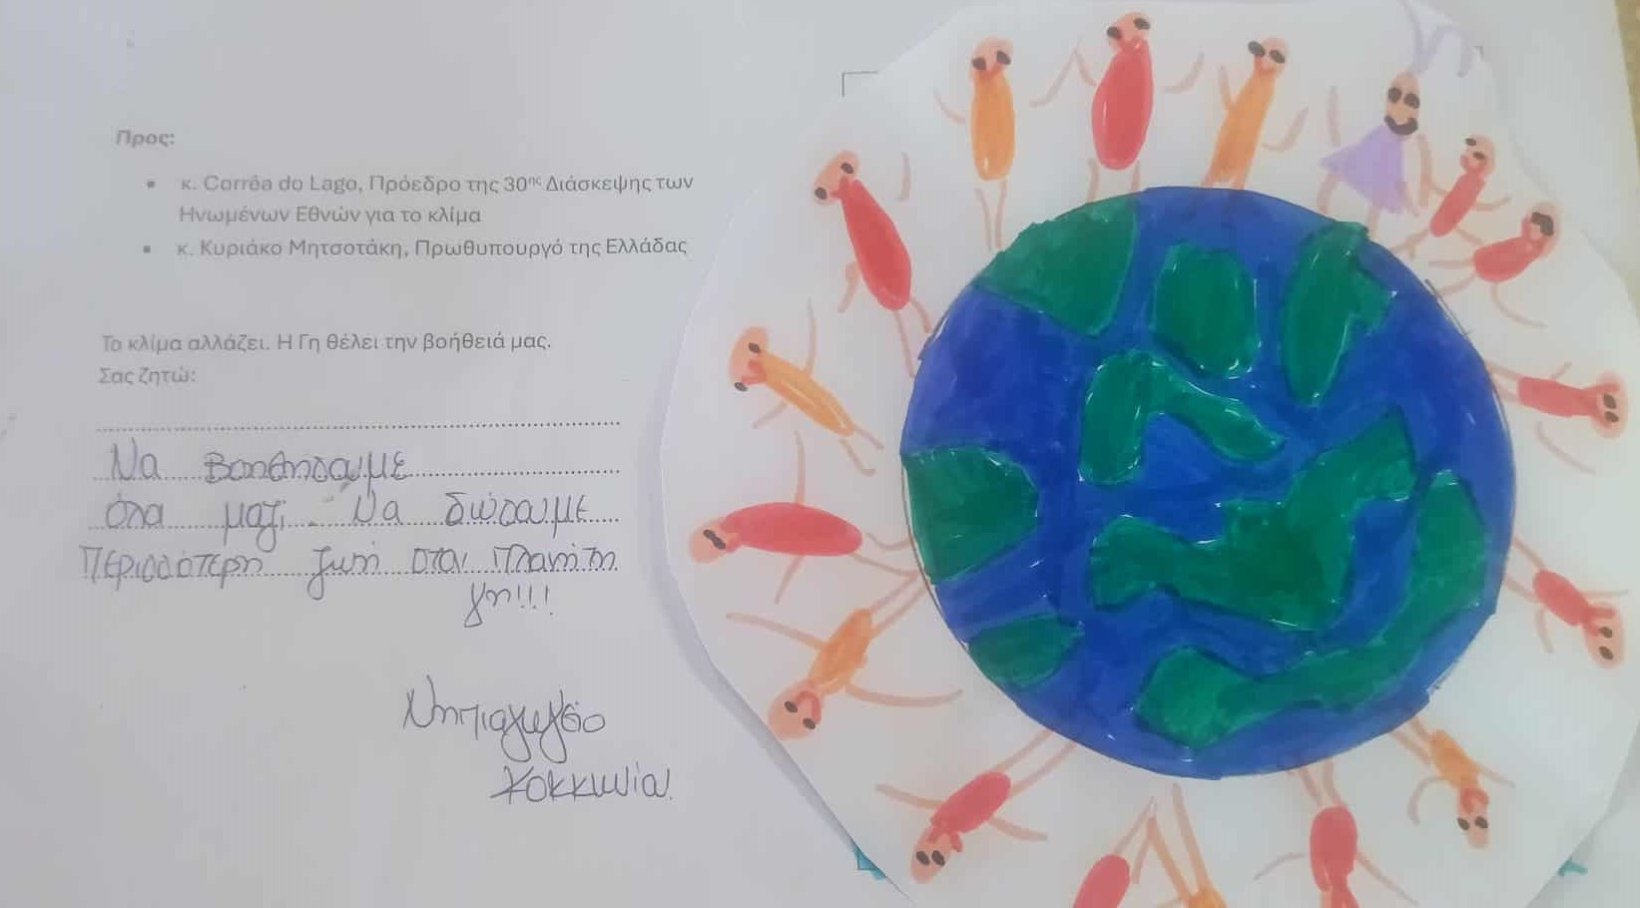 Προς:
• κ. Corrêa do Lago, Πρόεδρο της 30ης Διάσκεψης των
Ηνωμένων Εθνών για το κλίμα
• κ. Κυριάκο Μητσοτάκη, Πρωθυπουργό της Ελλάδας
Το κλίμα αλλάζει. Η Γη θέλει την βοήθειά μας.
Σας ζητώ:
Να βοηθήσουμε
όλα μαζί. Να δώσουμε
Περισσότερη ζωή στον πλανήτη
γη!!!
Νηπιαγωγείο
Κοκκωνία!